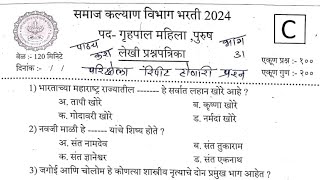 समाज कल्याण विभाग भरती 2024
पद- गृहपाल महिला, पुरुष
C
लेखी प्रश्नपत्रिका
पाठ्य
करा
भाग
31
वेळ :- 120 मिनिटे
दिनांक :- / /
परिक्षेला रिपीट होणारी प्रश्न
एकूण प्रश्न :- १००
एकूण गुण :- २००
1) भारताच्या महाराष्ट्र राज्यातील ------ हे सर्वात लहान खोरे आहे ?
अ. तापी खोरे
ब. कृष्णा खोरे
क. गोदावरी खोरे
ड. नर्मदा खोरे
2) नवजी माळी हे ------ यांचे शिष्य होते ?
अ. संत नामदेव
ब. संत तुकाराम
क. संत ज्ञानेश्वर
ड. संत एकनाथ
3) जगोई आणि चोलोम हे कोणत्या शास्त्रीय नृत्याचे दोन प्रमुख भाग आहेत ?